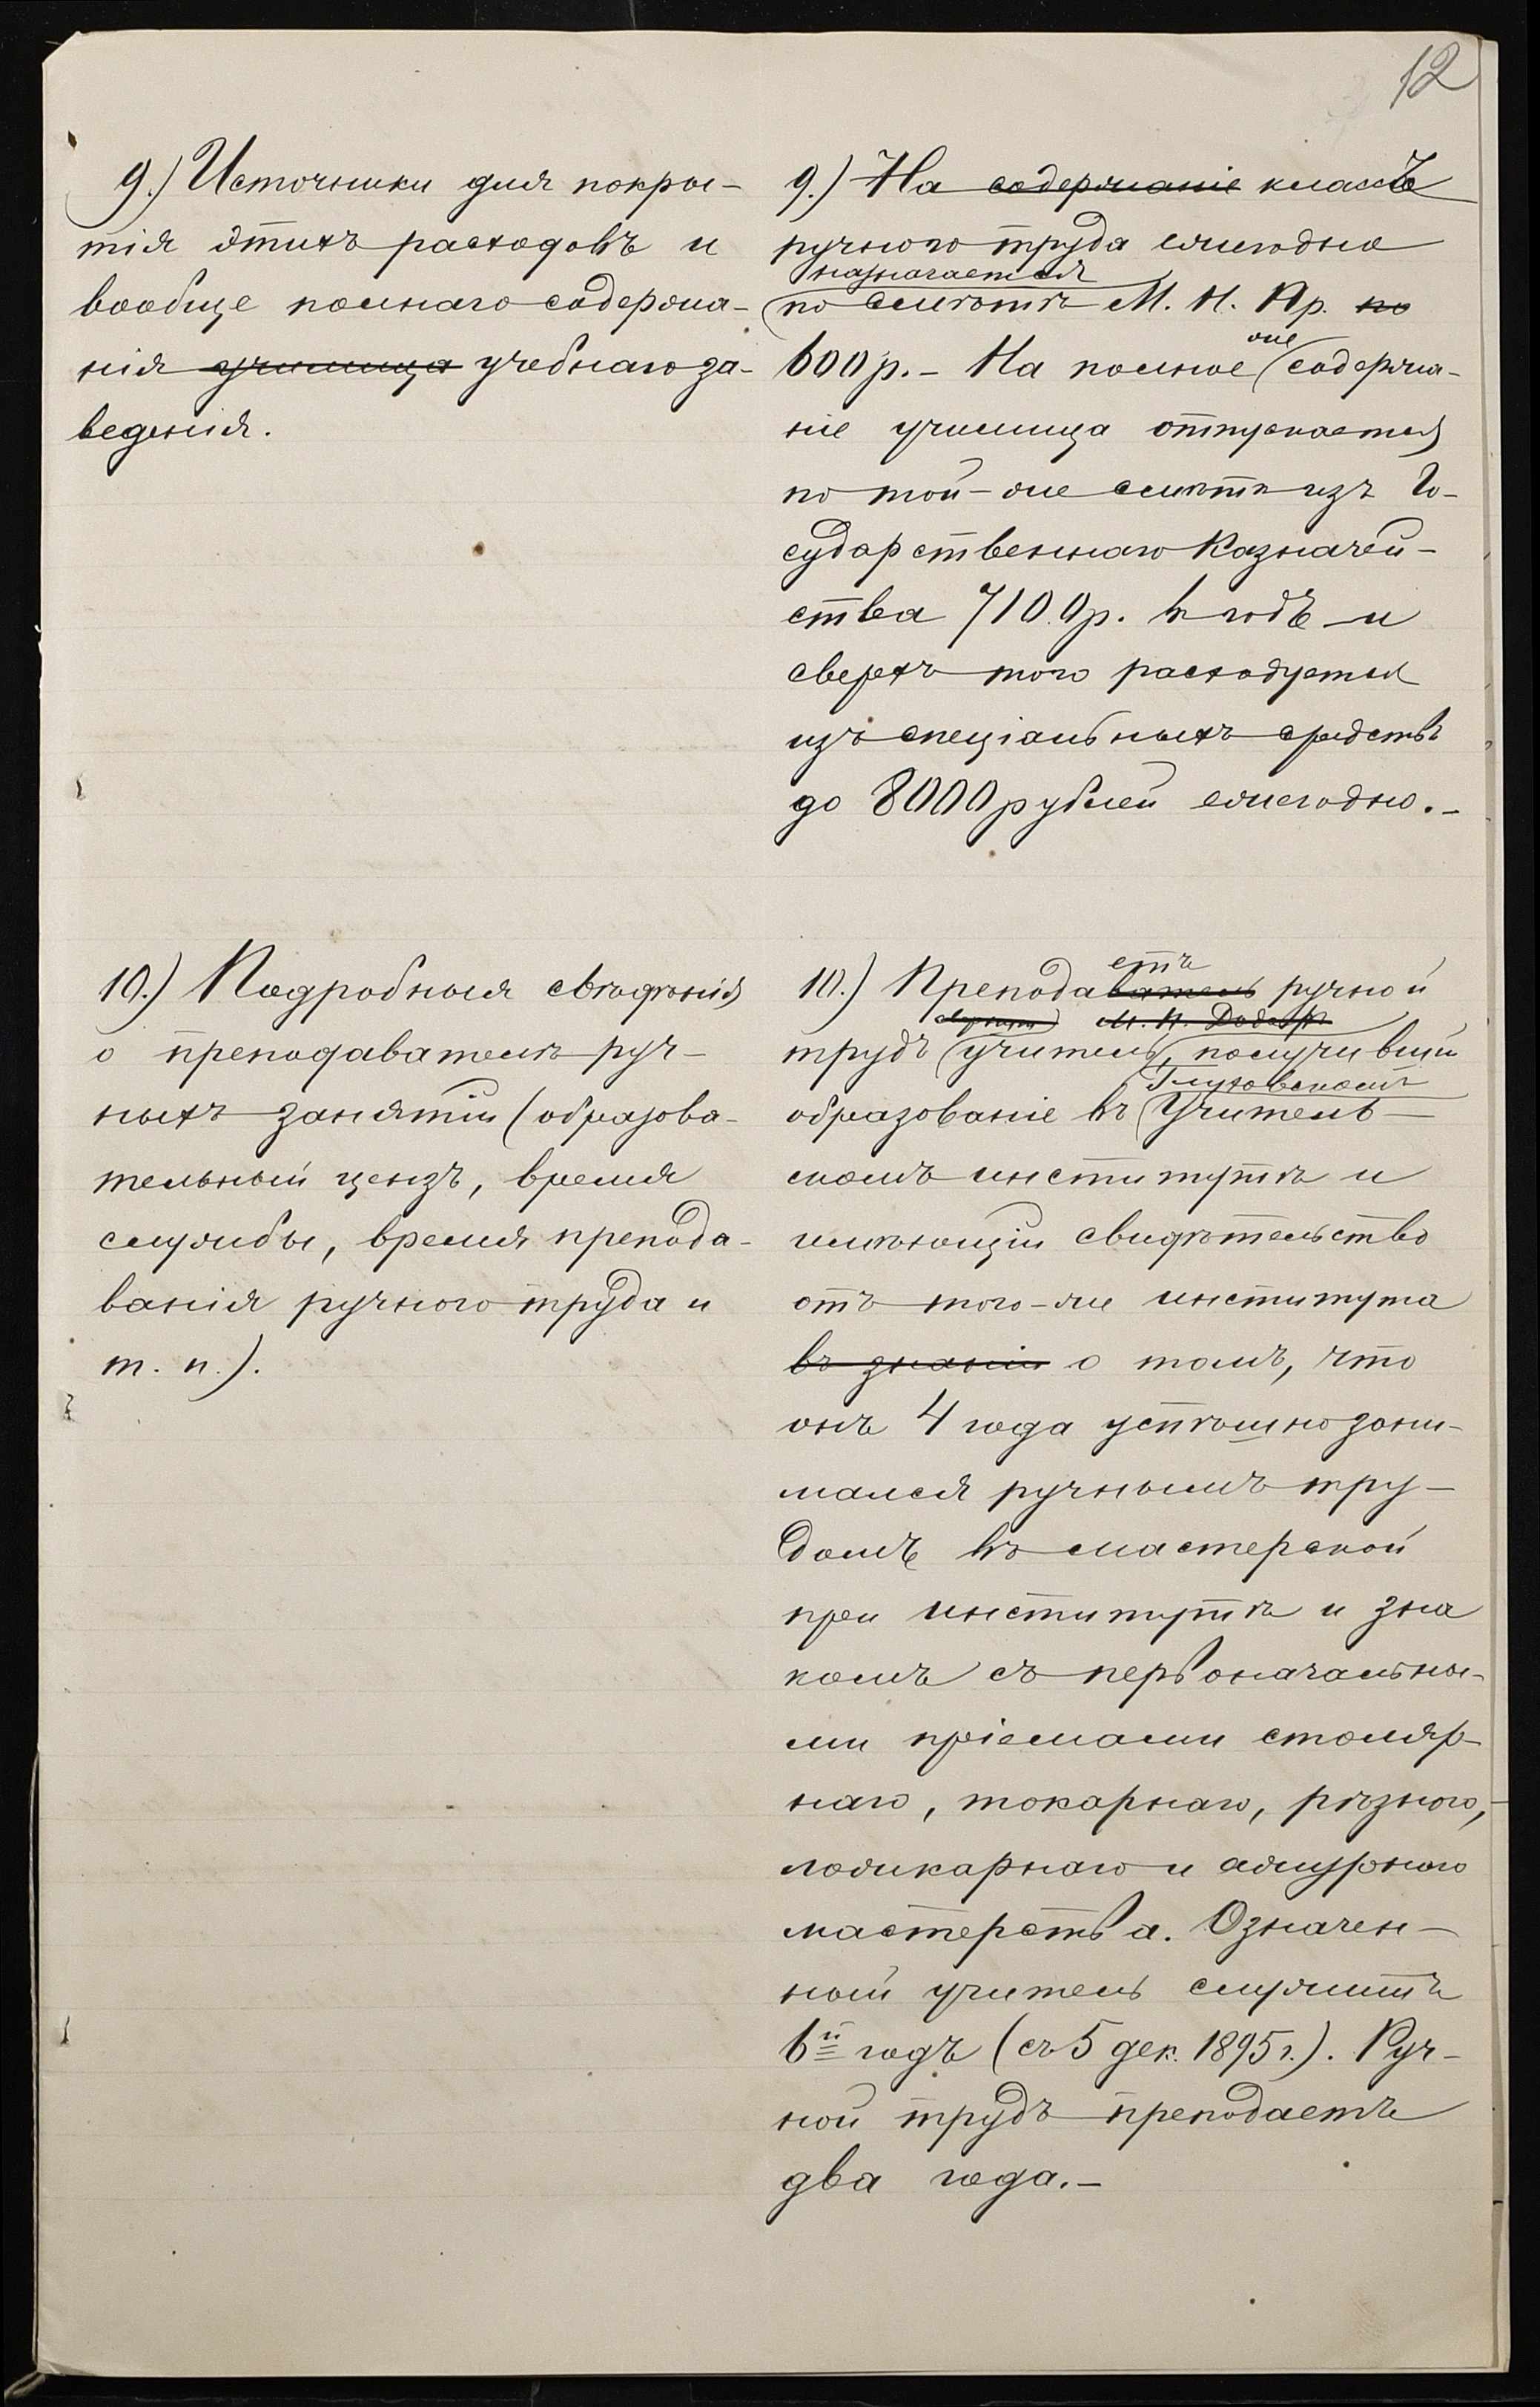 12
9.) Источники для покры-
тія этихъ расходовъ и
вообще полнаго содержа-
нія училища учебнаго за-
веденія.
9.) На содержаніе классъ
ручного труда ежегодно
назначается
по смѣтѣ М. Н. Пр. по
600 р. - На полное же содержа-
ніе училища отпускается
по той-же смѣтѣ изъ Го-
сударственнаго Казначей-
ства 7100 р. въ годъ и
сверхъ того расходуется
изъ спеціальныхъ средствъ
до 8000 рублей ежегодно. -
10.) Подробныя свѣдѣнія
о преподавателѣ руч-
ныхъ занятій (образова-
тельный цензъ, время
службы, время препода-
ванія ручного труда и
т. п.).
етъ
10.) Преподаватель ручной
М. П.
трудъ учитель, получившій
Глуховскомъ
образованіе въ Учитель-
скомъ институтѣ и
имѣющій свидѣтельство
отъ того-же института
въ знаніи о томъ, что
онъ 4 года успѣшно зани-
мался ручнымъ тру-
домъ въ мастерской
при институтѣ и зна
комъ съ первоначальны-
ми пріемами столяр-
наго, токарнаго, рѣзного,
ложкарнаго и ажурного
мастерства. Означен-
ный учитель служитъ
6й годъ (съ 5 дек. 1895 г.). Руч-
ной трудъ преподаетъ
два года. -